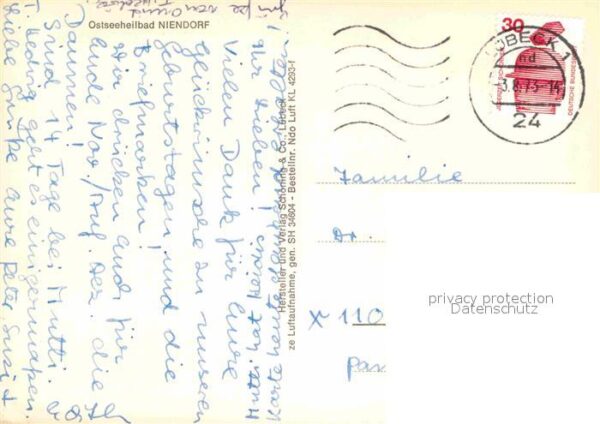 Ostseeheilbad NIENDORF
Ihr Lieben!
Vielen Dank für Eure
Glückwünsche zu unseren
Geburtstagen und die
Briefmarken!
Wir drücken Euch für
Ende Nov./Anf. Dez. die
Daumen!
Sind 14 Tage bei Mutti.
T. Hedwig geht es einigermaßen.
Liebe Grüße Eure Peter Susi +
Hersteller und Verlag Schöning & Co., Lübeck
ze Luftaufnahme, gen. SH 34604 · Bestellnr. Ndo Luft KL 4293-f
30
DEUTSCHE BUNDESPOST
LÜBECK 1
24
Familie
Dr.
110
privacy protection
Datenschutz